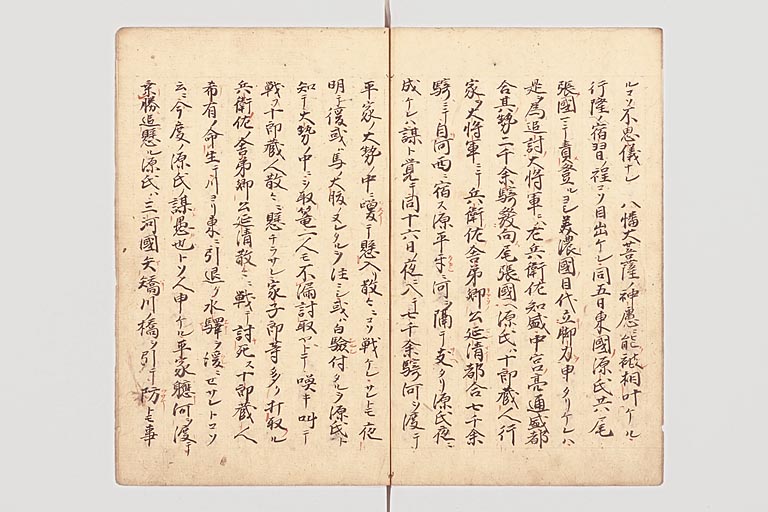 ルコソ不思儀ナレ 八幡大菩薩ノ神慮ニ能被相叶ケル
行隆ノ宿習ノ程コソ目出ケレ同五日東國源氏共尾
張國ニテ責登ルヨシ美濃國目代立脚力申タリケレハ
是為追討大将軍ニハ左兵衛佐知盛中宮亮通盛都
合其勢二千余騎發向尾張國源氏ハ十郎蔵人行
家ヲ大将軍ニテ兵衛佐舎弟卿公延清都合七千余
騎ニテ自河西ニ宿ス源平互ニ河ヲ隔テ支タリ源氏夜ニ
成ケレハ謀ト覚テ同十六日ノ夜ニ入テ七千余騎河ヲ渡テ
平家ノ大勢ノ中ニ喚テ懸入リ散々ニコソ戦ケレサレトモ夜
明テ後或ハ馬ノ大腹ノヌレタルヲ注シニシ或ハ白験付タルヲ源氏ト
知テ大勢ノ中ニシ取篭一人モ不漏討取ヤトテ喚キ叫テ
戦フ十郎蔵人散々ニ懸チラサレ家子郎等多ク打取ル
兵衛佐ノ舎弟卿公延清散々ニ戦テ討死ス十郎蔵人
希有ノ命生テ川ヨリ東ニ引退ク水驛ヲ後ニセサレトコソ
云ニ今度ノ源氏謀愚也トソ人申ケル平家軈河ヲ渡テ
乗勝追懸ル源氏ハ三河國矢矯川ノ橋ヲ引テ防トモ事